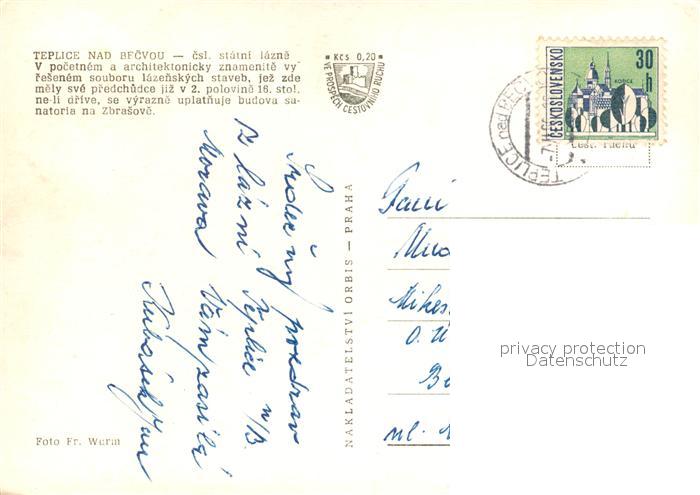 TEPLICE NAD BEČVOU — čsl. státní lázně
V početném a architektonicky znamenitě vy-
řešeném souboru lázeňských staveb, jež zde
měly své předchůdce již v 2. polovině 16. stol.
ne-li dříve, se výrazně uplatňuje budova sa-
natoria na Zbrašově.
Kčs 0,20
VE PROSPĚCH CESTOVNÍHO RUCHU
ČESKOSLOVENSKO
30 h
KOŠICE
TEPLICE nad BEČ
cest. ruchu
Srdečný pozdrav
z lázní Teplic n/B.
Morava Vám zasílá
Kubásek Jan
NAKLADATELSTVÍ ORBIS — PRAHA
Paní
O. U
ul.
privacy protection
Datenschutz
Foto Fr. Wurm